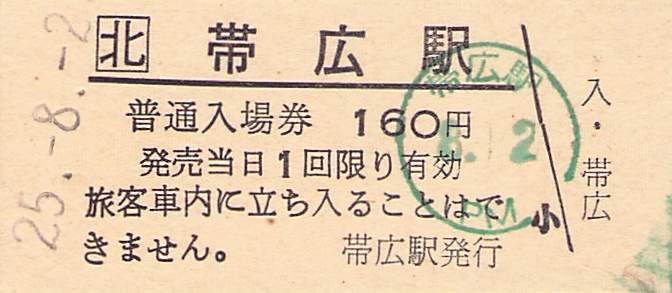 北 帯広駅
普通入場券 160円
発売当日1回限り有効
旅客車内に立ち入ることはで
きません。 帯広駅発行
小
入・帯広
25.-8.-2
帯広駅
8. 2
PM